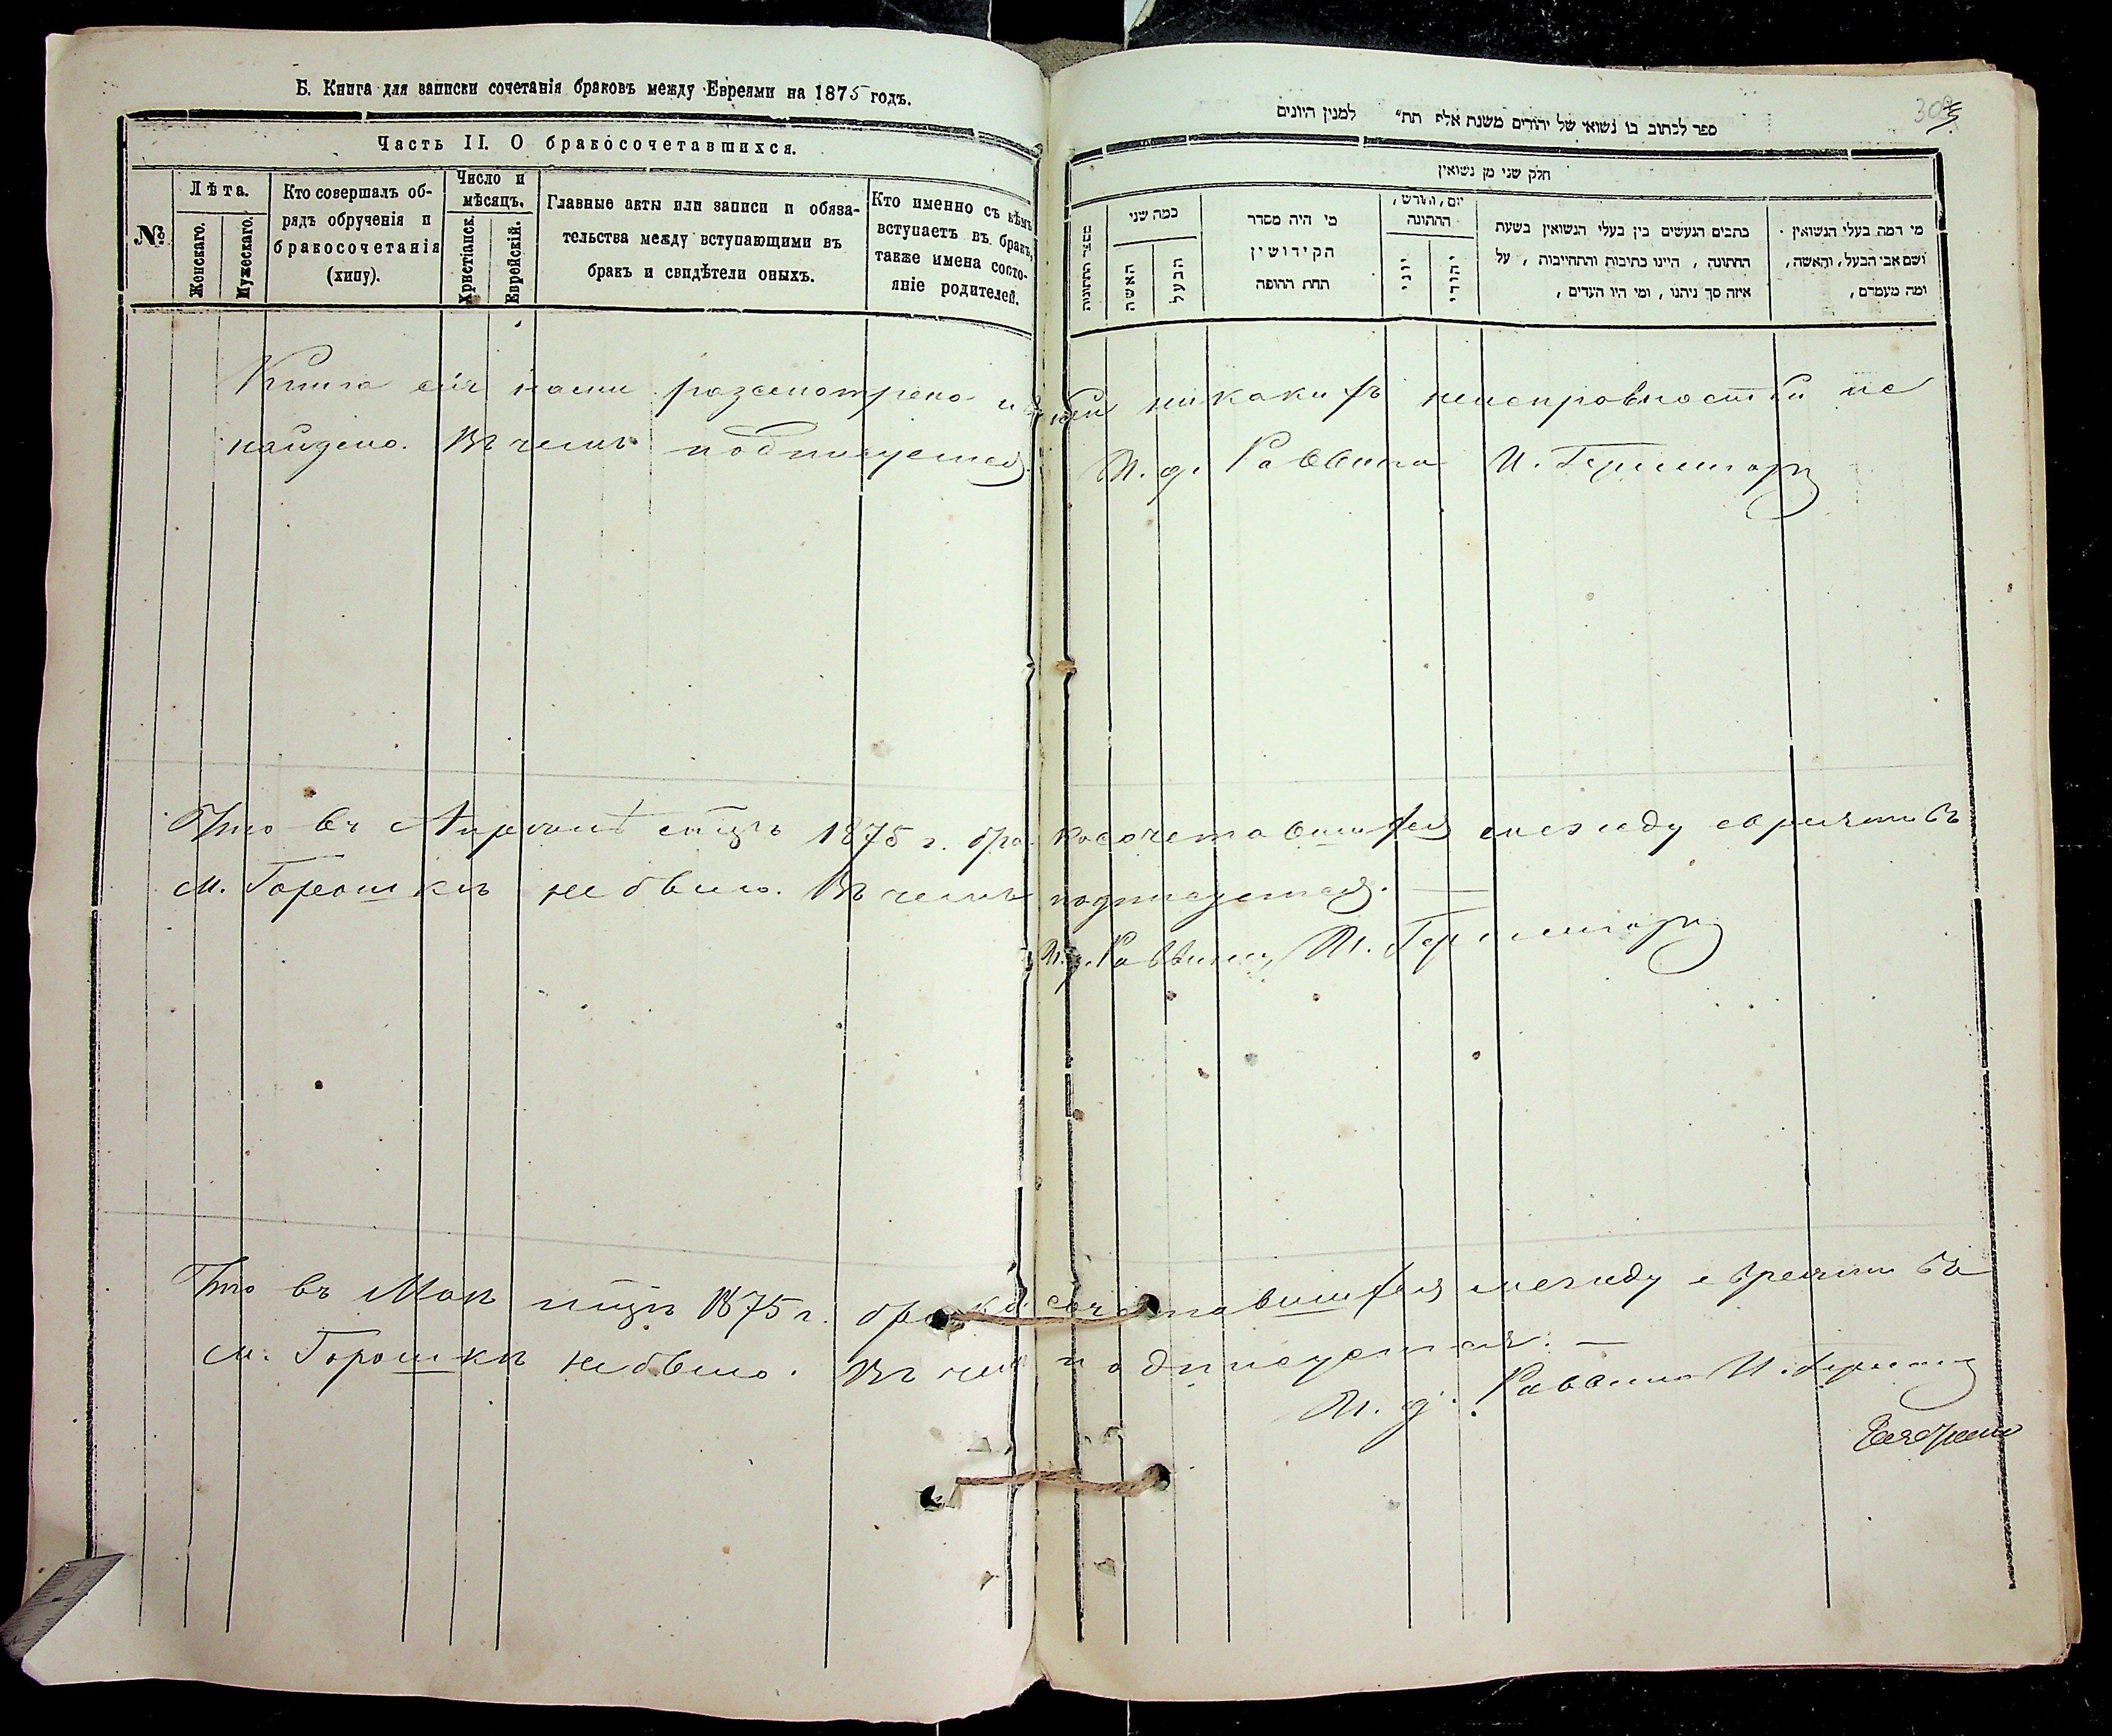 Б. Книга для записки сочетанія браковъ между Евреями на 1875 годъ.
Часть II. О бракосочетавшихся.
№
Лѣта.
Женскаго.
Мужескаго.
Кто совершалъ об-
рядъ обрученія и
бракосочетанія
(хипу).
Число и
мѣсяцъ.
Христіанск.
Еврейскій.
Главные акты или записи и обяза-
тельства между вступающими въ
бракъ и свидѣтели оныхъ.
Кто именно съ кѣмъ
вступаетъ въ бракъ,
также имена состо-
яніе родителей.
ספר לכתוב בו נשואי של יהודים משנת אלף תת״ למנין היונים
חלק שני מן נשואין
מספר החתונות
כמה שני
האשה
הבעל
מי היה מסדר
הקידושין
תחת החופה
יום, וחודש,
החתונה
יוני
יהודי
כתבים הנעשים בין בעלי הנשואין בשעת
החתונה, היינו כתיבות והתחייבות, על
איזה סך ניתנו, ומי היו העדים,
מי המה בעלי הנשואין
ושם אבי הבעל, והאשה,
ומה מעמדם,
Книга сія нами разсмотрена и в ней никакихъ неисправностей не
найдено. Въ чемъ подписуемся. И. д. Раввина И.
Что въ Апрелѣ мцѣ 1875 г. бракосочетавшихся между евреями въ
м. Горошкѣ не было. Въ чемъ подписуемся. —
И. д. Раввина И.
Что въ Маѣ мцѣ 1875 г. бракосочетавшихся между евреями въ
м. Горошкѣ не было. Въ чемъ подписуемся: —
И. д. Раввина И.